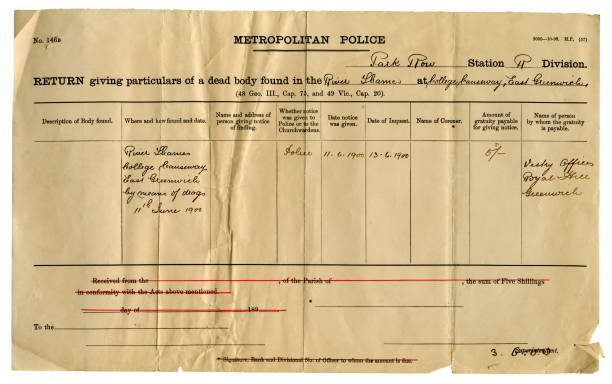 No. 146b
METROPOLITAN POLICE
5000—10-98. M.P. (57)
Park Row Station R Division.
RETURN giving particulars of a dead body found in the River Thames at College Causeway, East Greenwich
(48 Geo. III., Cap. 75, and 49 Vic., Cap. 20).
Description of Body found. Where and how found and date. Name and address of person giving notice of finding. Whether notice was given to Police or to the Churchwardens. Date notice was given. Date of Inquest. Name of Coroner. Amount of gratuity payable for giving notice. Name of person by whom the gratuity is payable.
River Thames Police 11.6.1900 13.6.1900 5/-
College Causeway
East Greenwich
by means of drags
11th June 1900
Vestry Offices
Royal Hill
Greenwich
Received from the , of the Parish of , the sum of Five Shillings
in conformity with the Acts above mentioned.
day of 189
To the
3. Superintendent.
* Signature, Rank and Divisional No. of Officer to whom the amount is due.